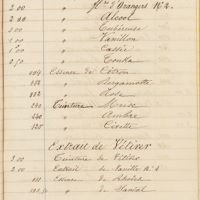 2.00 " fl. d'Orangers No 4.
2.00 " Alcool
" Tubéreuse
2.00 " Vanillon
1.00 " Cassie
0.50 " Tonka
004 Essence de Citron
" Bergamotte
002 " Rose
040 Teinture " Musc
040 " Ambre
120 " Civette
Extrait de Vétiver
3.00 Teinture de Vétiver
2.00 Extrait de Vanille No 4
Essence de Rhodes
" de Santal